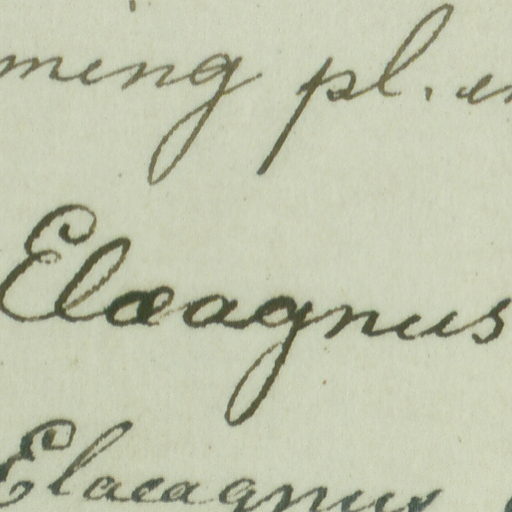 ming pl.
Elæagnus
Elaeagnus